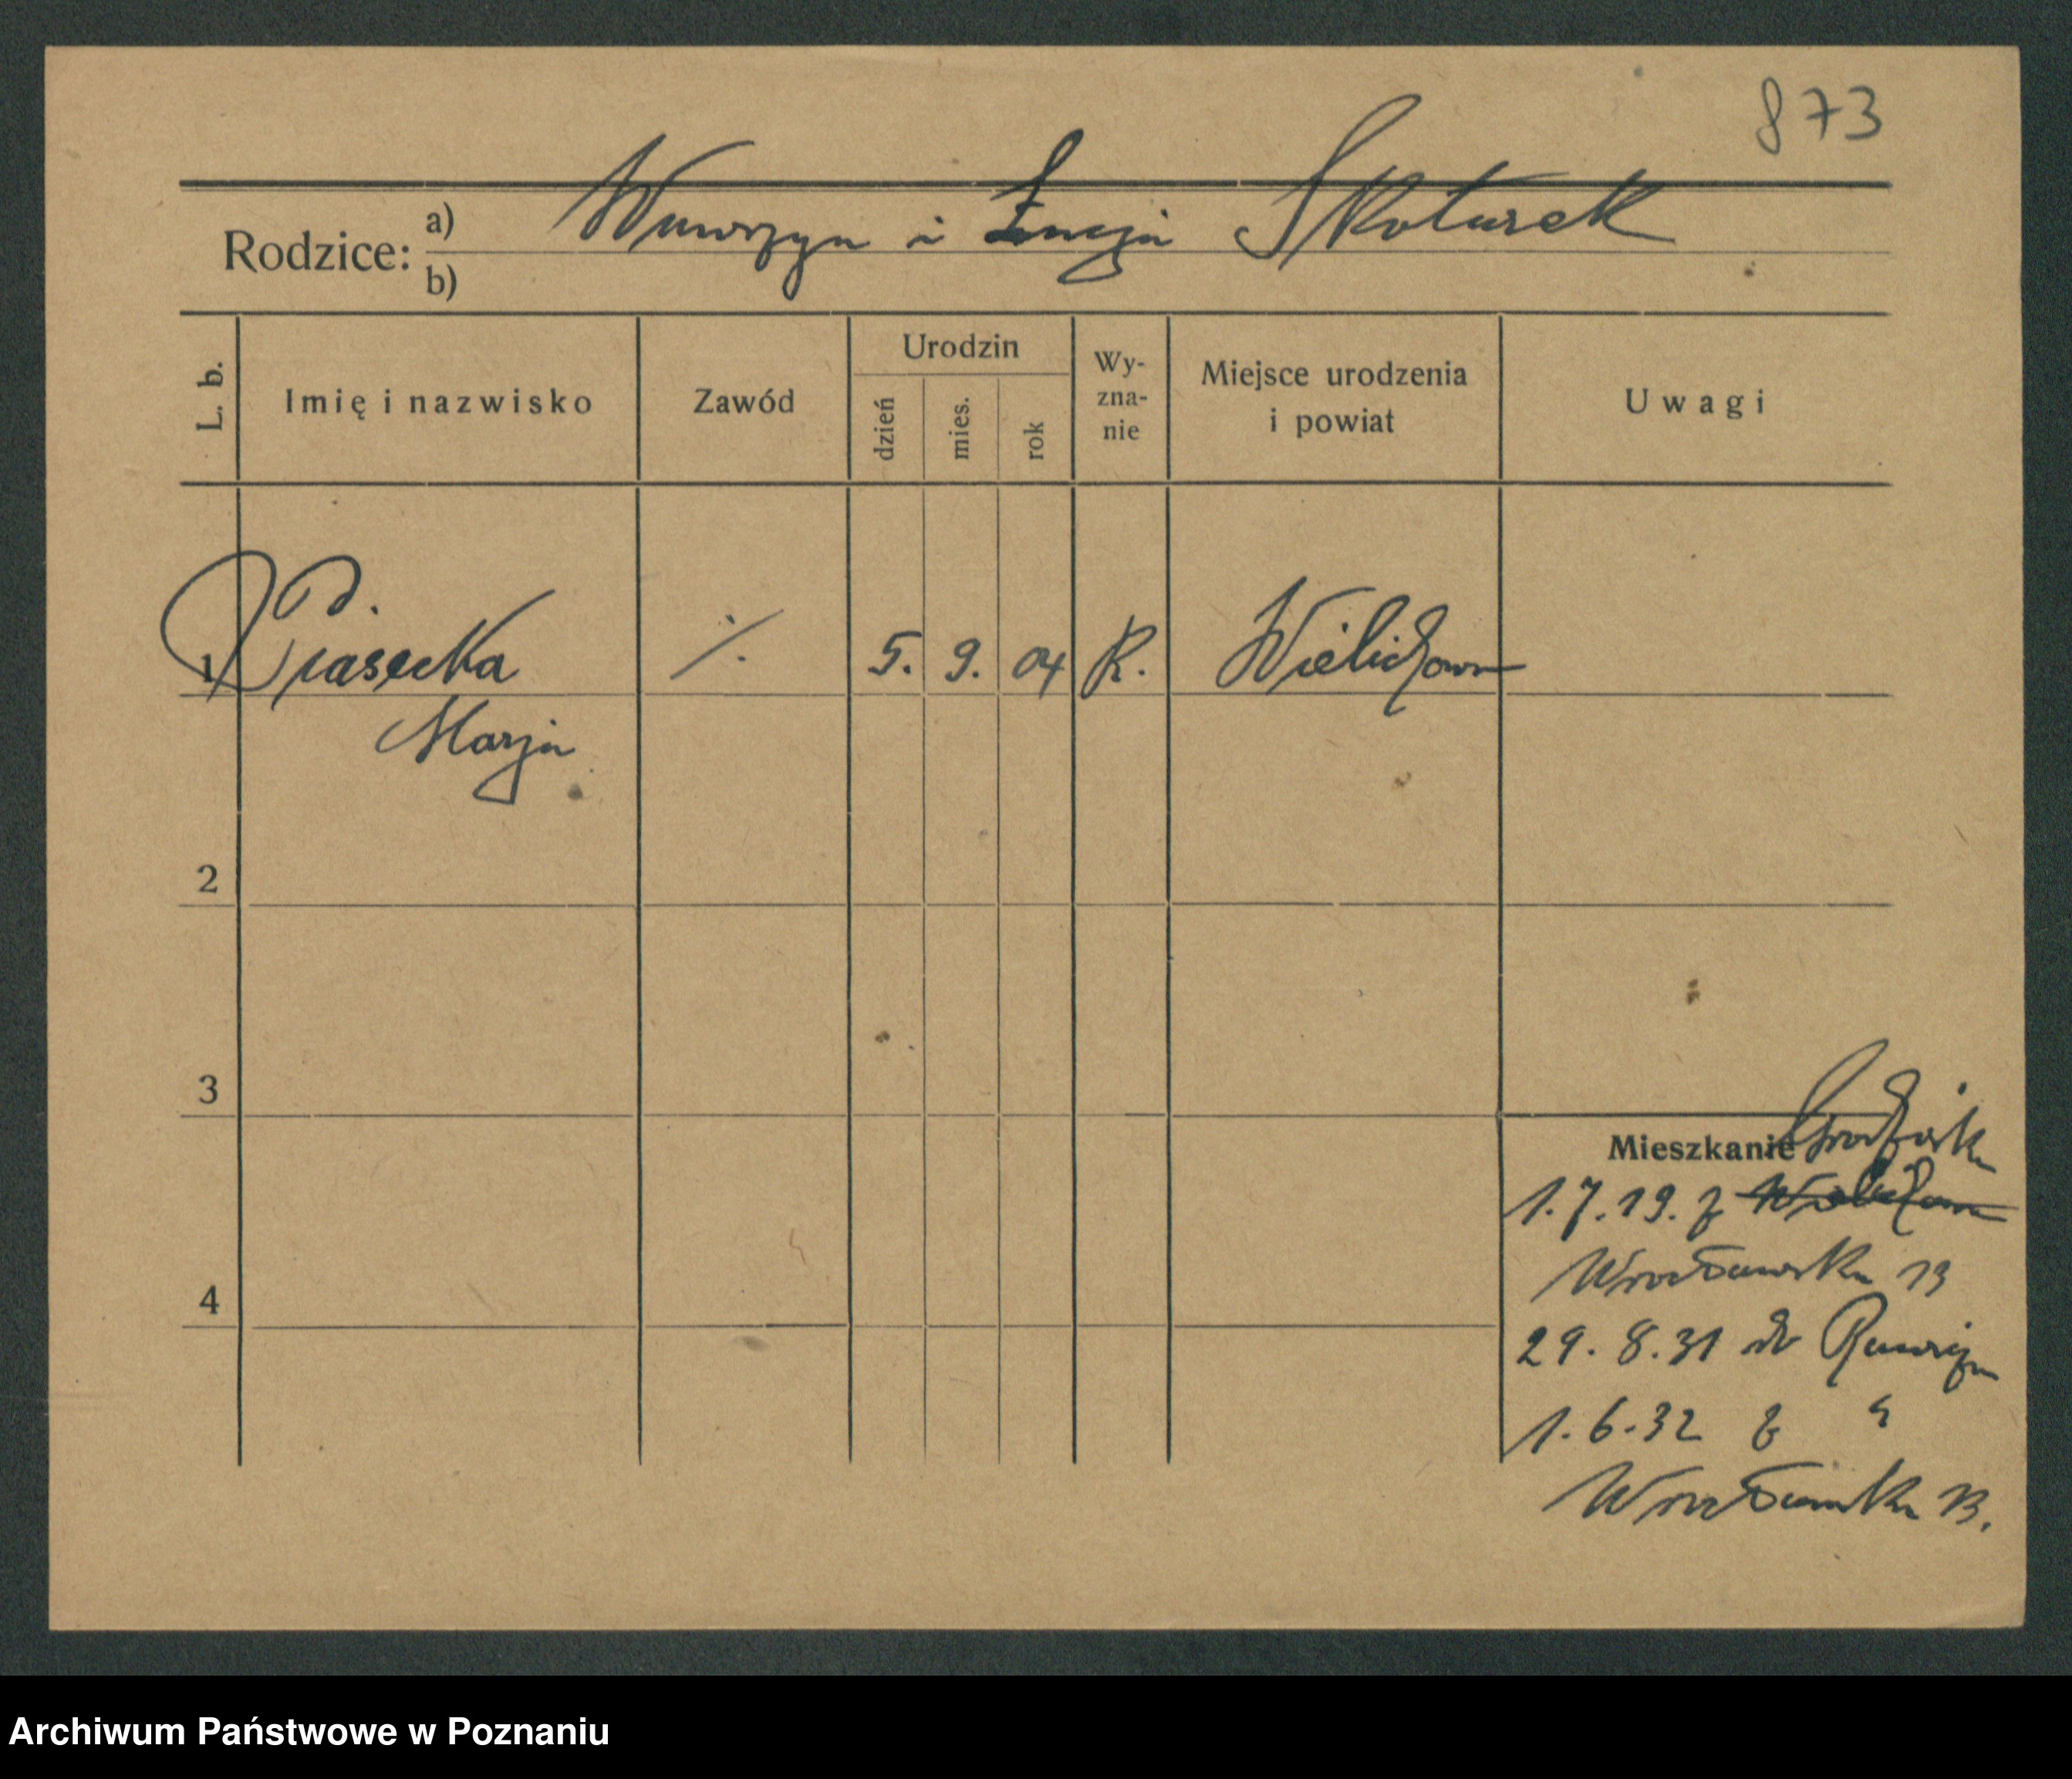 873
Rodzice: a) Wawrzyn i Łucja Skoturek
b)
L. b. Imię i nazwisko Zawód Urodzin dzień mies. rok Wy-zna-nie Miejsce urodzenia i powiat Uwagi
1 Piasecka ./. 5. 9. 04 R. Wielichowo
Marja
2
3
Mieszkanie Grodziska
1.7.19. z Wielichowa
Wrocławska 13
4
29.8.31 do Rawicza
1.6.32 z "
Wrocławska 13.
Archiwum Państwowe w Poznaniu